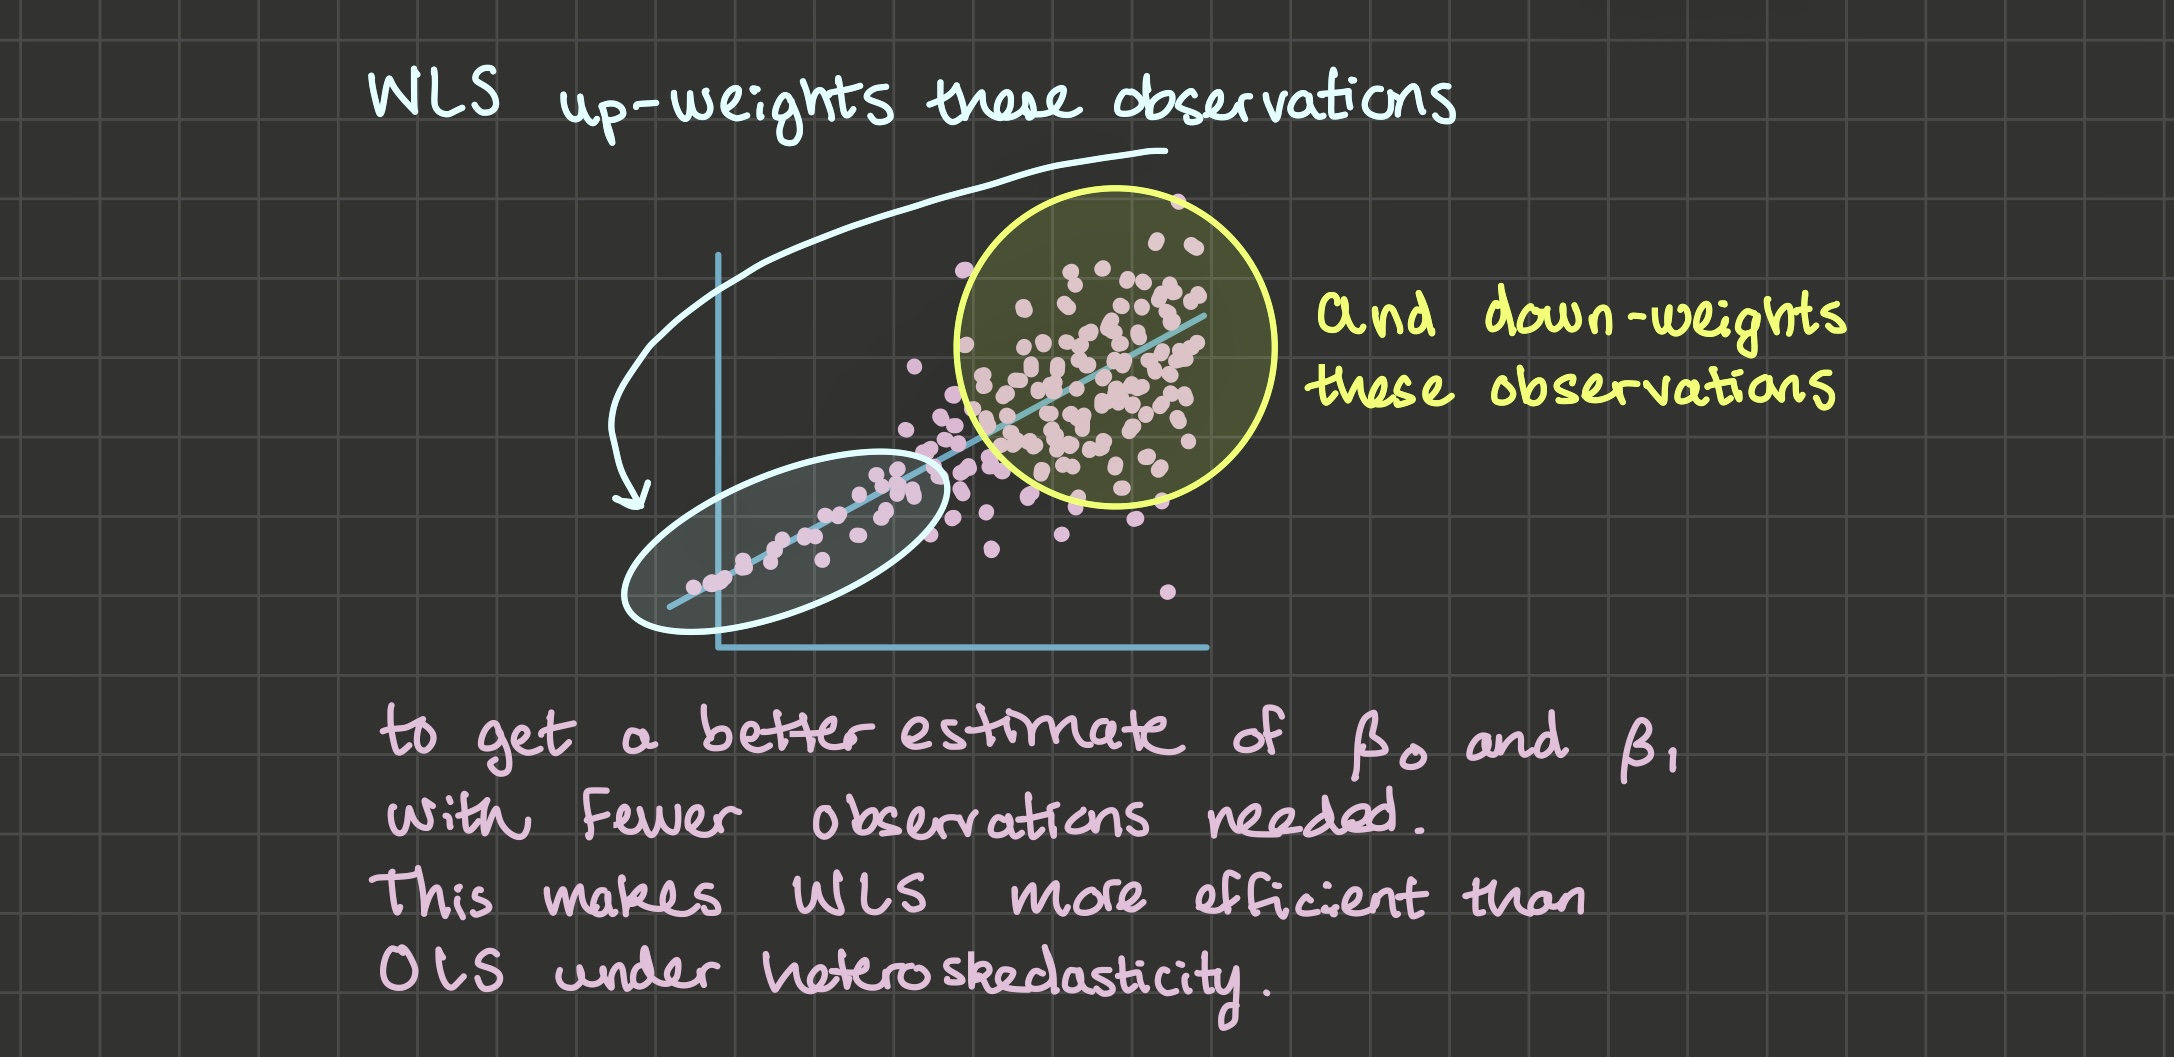 WLS up-weights these observations
and down-weights
these observations
to get a better estimate of β₀ and β₁
with fewer observations needed.
This makes WLS more efficient than
OLS under heteroskedasticity.